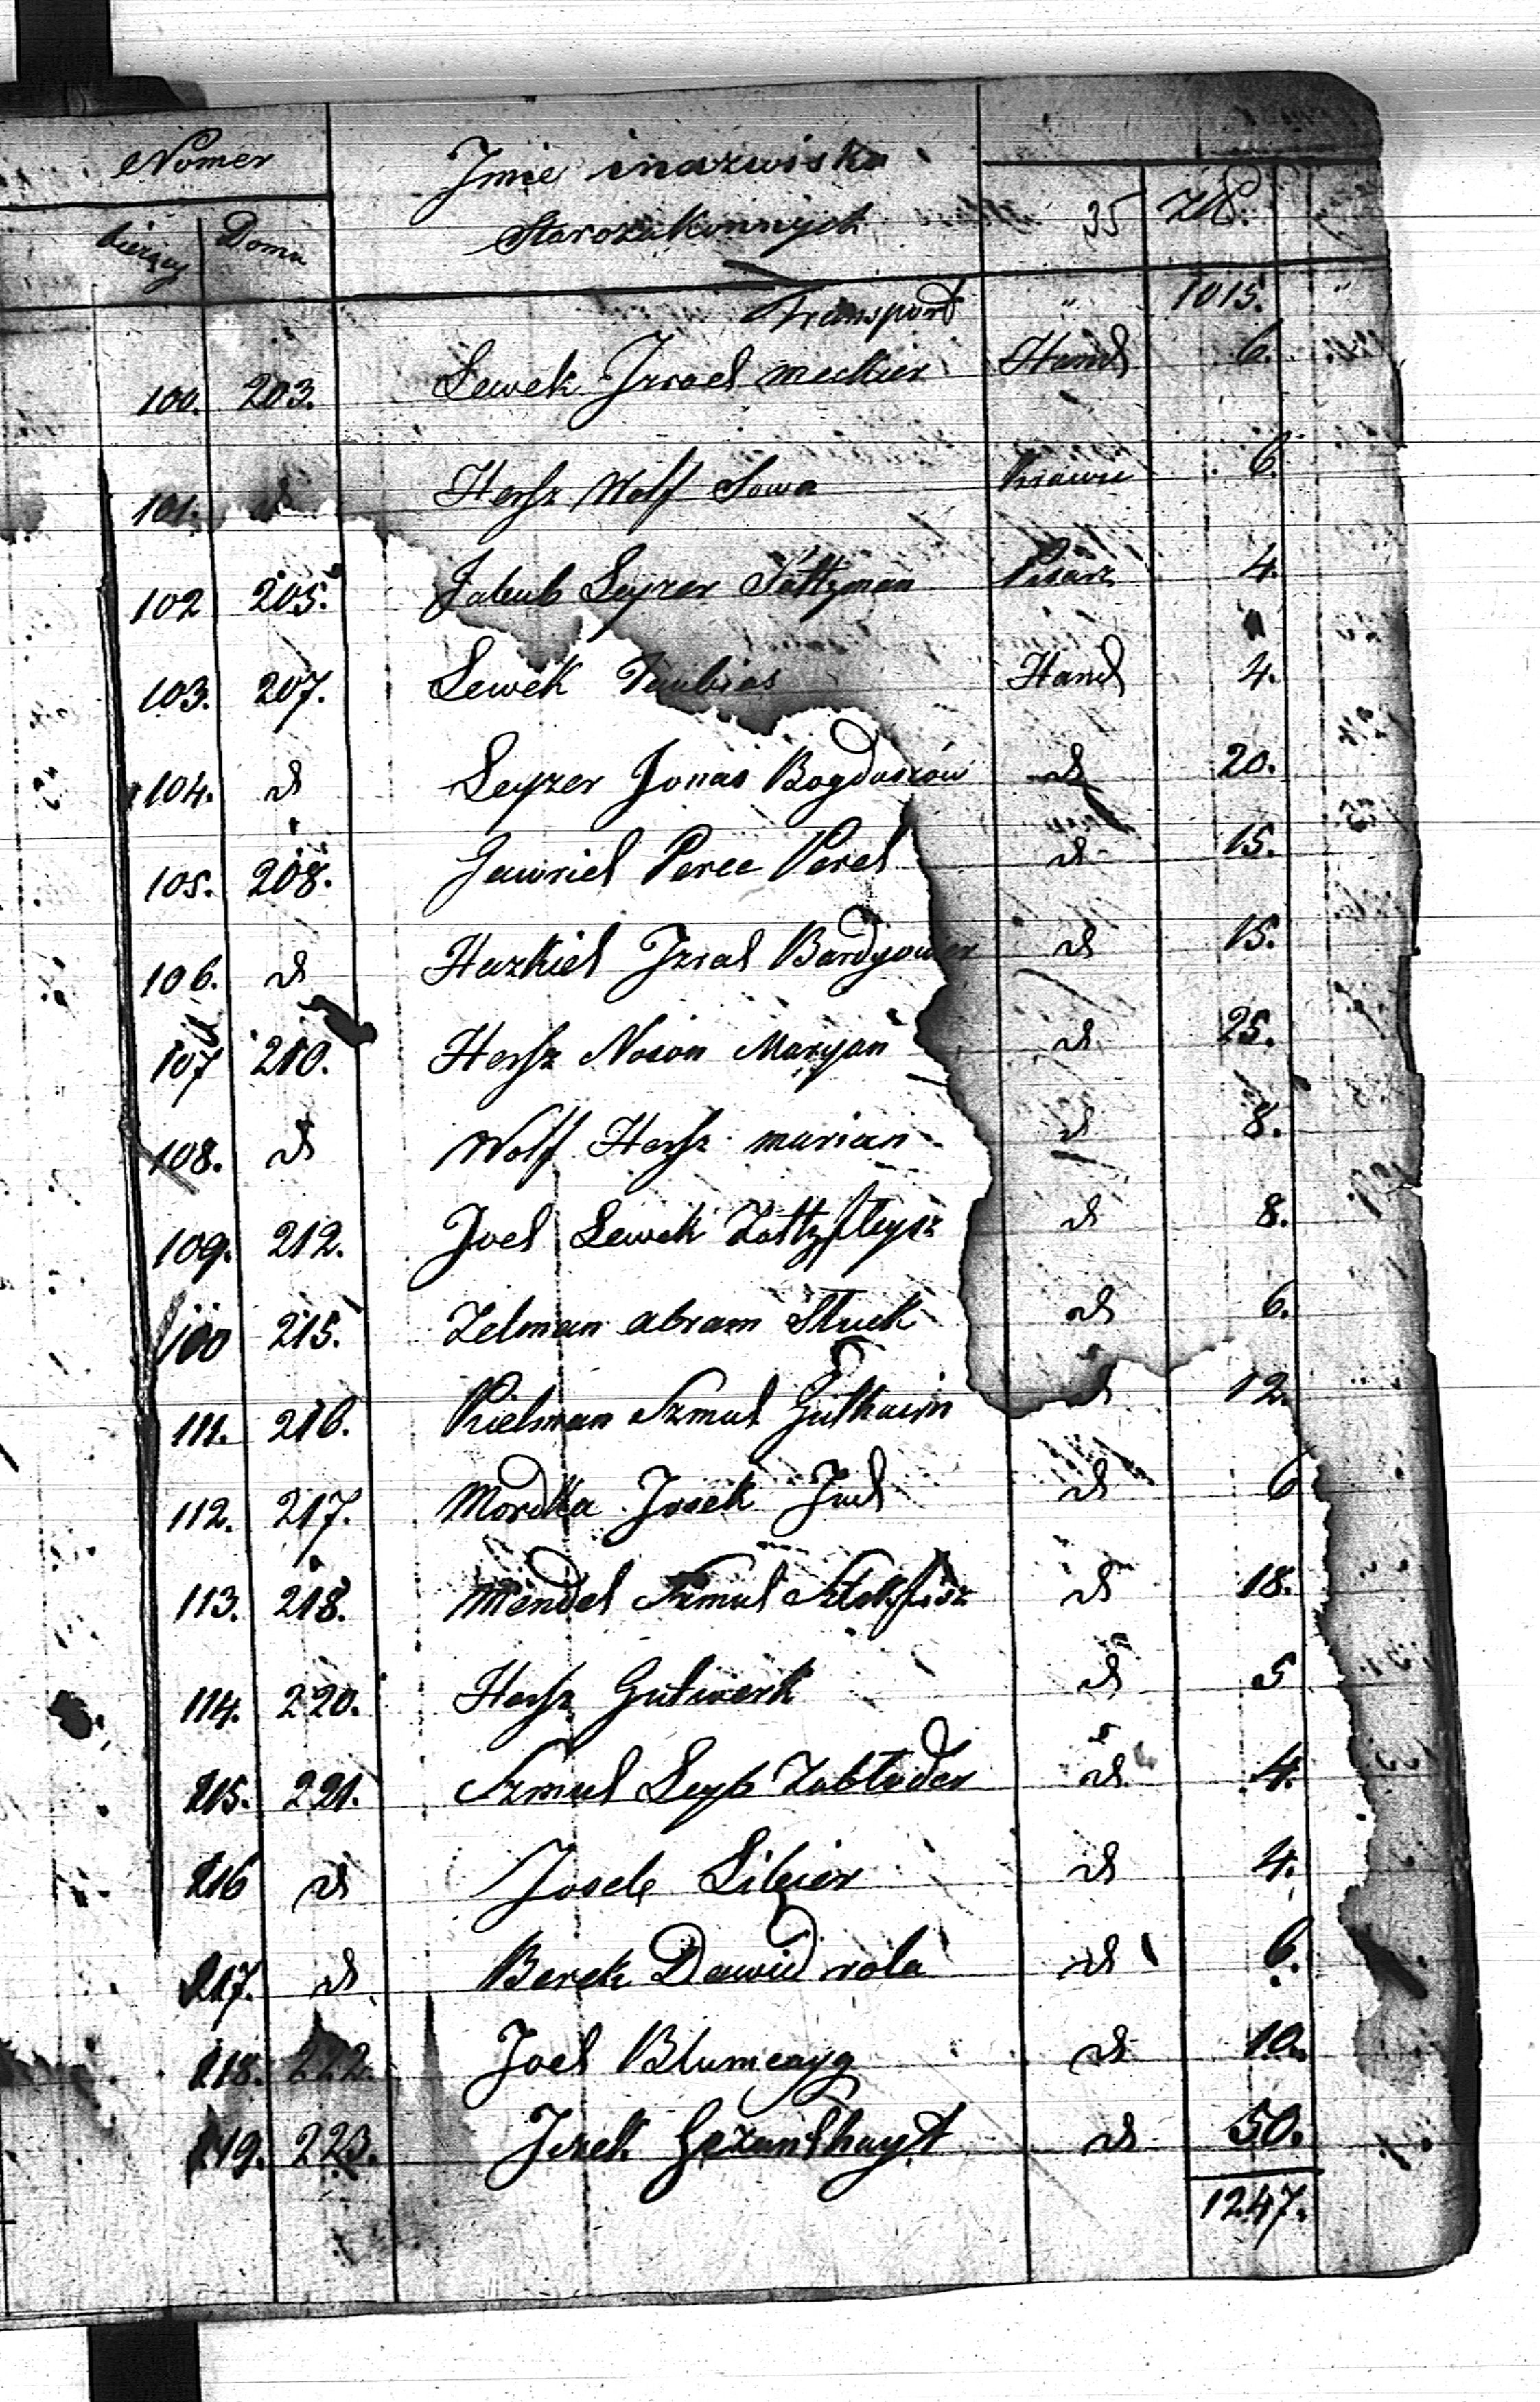 Nomer
Jmie inazwiska
bierzący Domu
Starozakonnych
35 Złp.
Transport " 1015. "
100. 203. Lewek Jzrael meckier Hand 6.
101. d Hersz Wolf Sowa Krawie 6.
102 205. Jakub Leyzer Saltzman Pisarz 4.
103. 207. Lewek Taubias Hand 4.
104. d Leyzer Jonas Bogdanow d 20.
105. 208. Jawriel Perec Perel d 15.
106. d Hazkiel Jzrael Bardyower d 15.
107 210. Hersz Noson Maryan d 25.
108. d Wolf Hersz marian d 8.
109. 212. Joel Lewek Zaltzfleysz d 8.
110 215. Zelman abram Stuck d 6.
111. 216. Kielman Szmul Guthaim d 12.
112. 217. Mordka Josek Jud d 6
113. 218. Mendel Szmul Sztokfisz d 18.
114. 220. Hersz Gutwerk d 5
115. 221. Szmul Leyb Zabłuder d 4.
116 d Josek Libier d 4.
117. d Berek Dawid rola d 6.
118. 222. Joel Blumcayg d 10.
119. 223. Jcek Gezunthayt d 50.
1247.